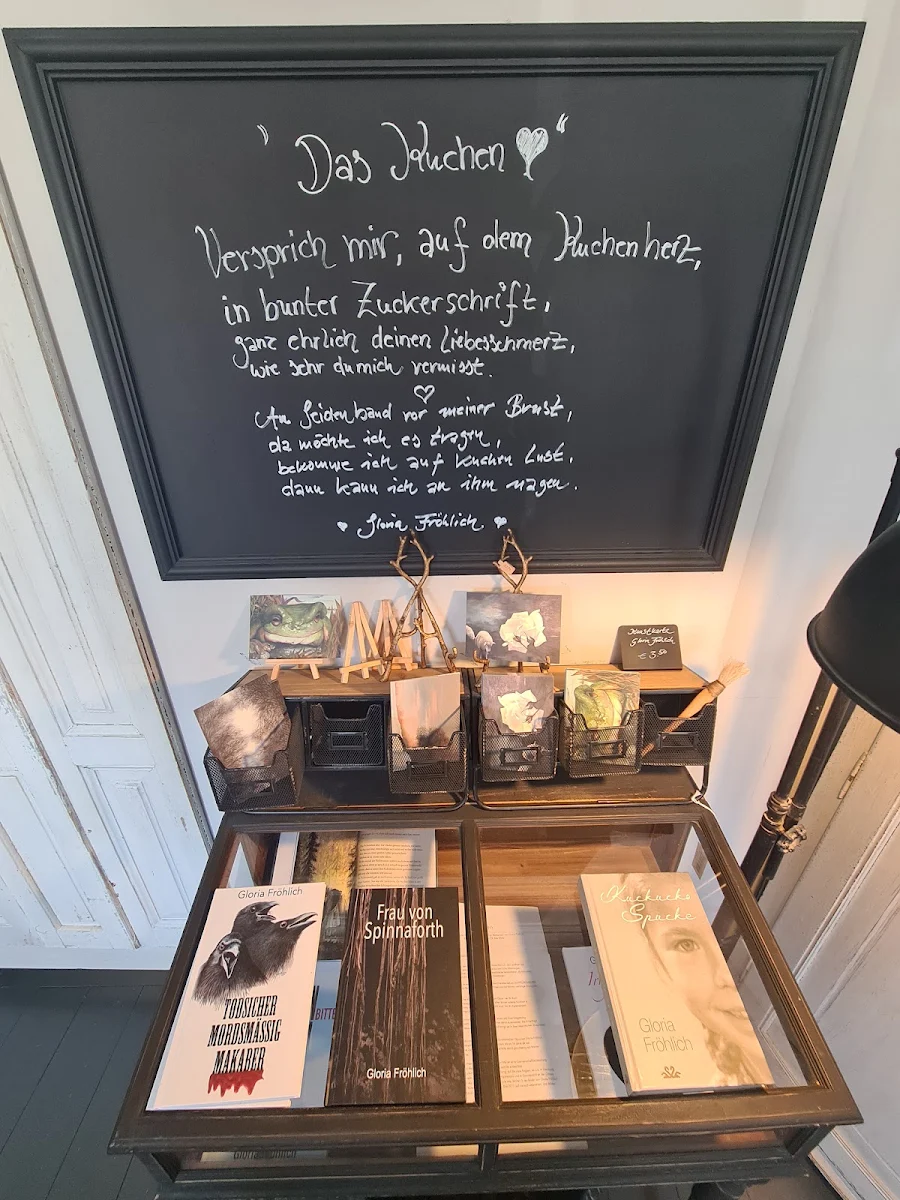 "Das Kuchen ♥"
Versprich mir, auf dem Kuchenherz,
in bunter Zuckerschrift,
ganz ehrlich deinen Liebesschmerz,
wie sehr du mich vermisst.
♡
Am Seidenband vor meiner Brust,
da möchte ich es tragen,
bekomme ich auf Kuchen Lust,
dann kann ich an ihm nagen.
♥ Gloria Fröhlich ♥
Kunstkarte
Gloria Fröhlich
€ 3.50
Gloria Fröhlich
TODSICHER
MORDSMÄSSIG
MAKABER
Frau von
Spinnaforth
Gloria Fröhlich
Kuckucks
Spucke
Gloria
Fröhlich
BITTE